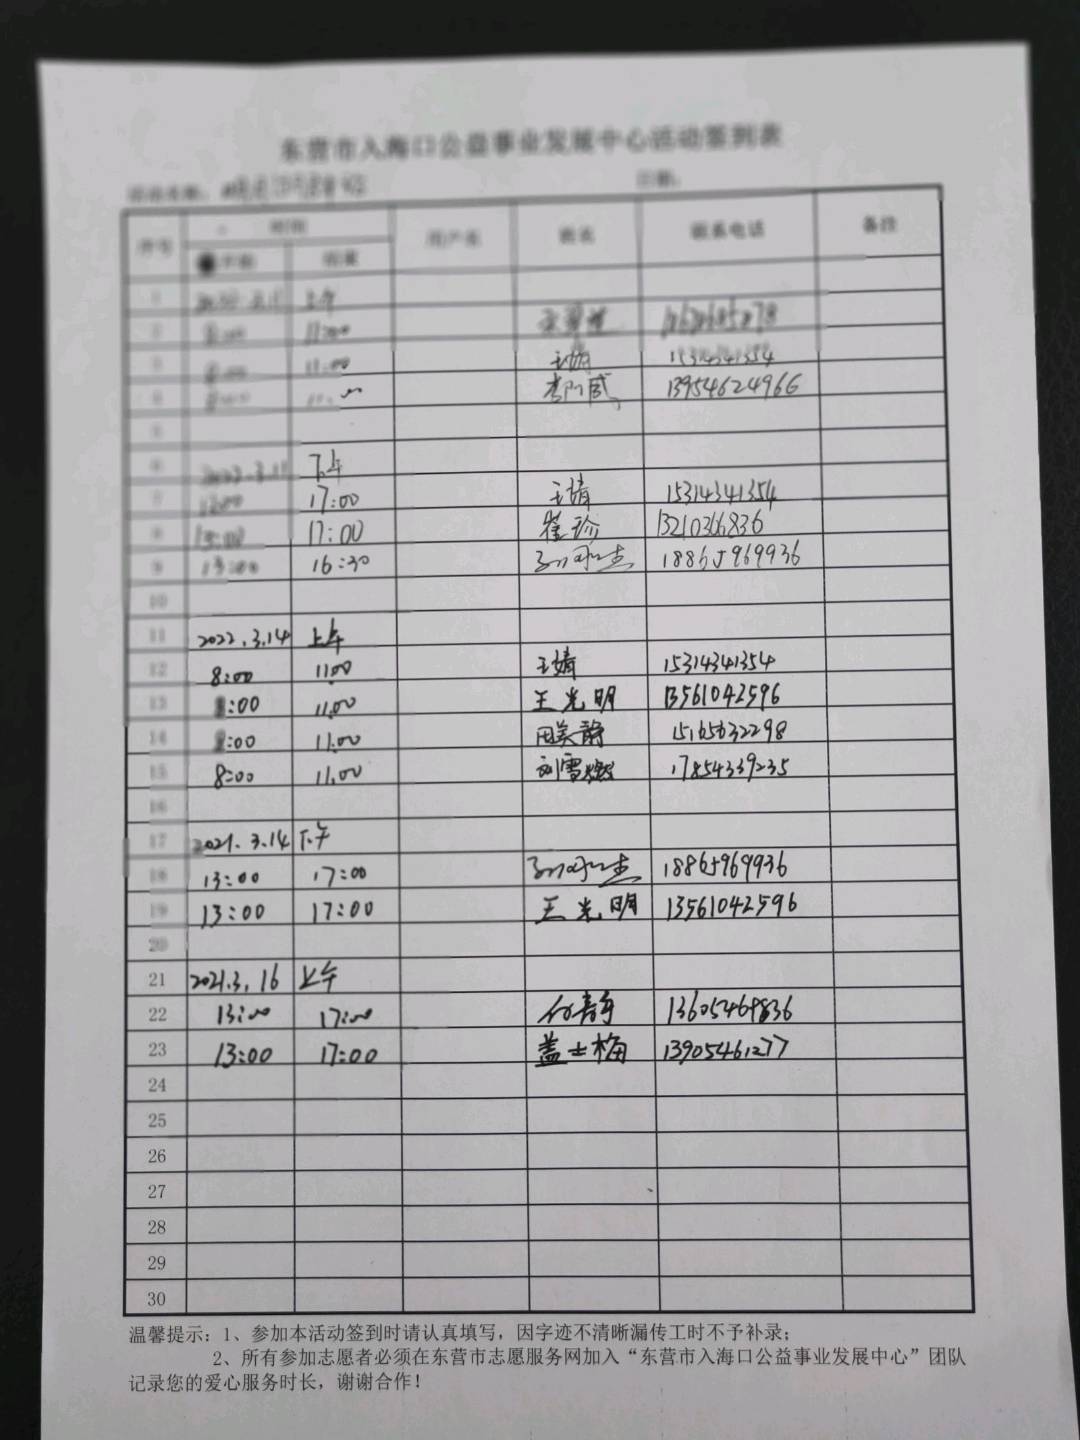 东营市入海口公益事业发展中心活动签到表
日期：
序号 时间 用户名 姓名 联系电话 备注
结束
1 上午
2 11:00
3 11:00 王婧 15314341354
4 13954624966
5
6 2022.3.11 下午
7 17:00 王婧 15314341354
8 13:00 17:00 崔珍
9 13:00 16:30 18865969936
10
11 2022.3.14 上午
12 8:00 11:00 王婧 15314341354
13 8:00 11.00 王光明 13561042596
14 8:00 11.00 田美静 15165632298
15 8:00 11.00 17854339235
16
17 2021.3.14 下午
18 13:00 17:00 18865969936
19 13:00 17:00 王光明 13561042596
20
21 2021.3.16 上午
22 13:00 17:00 付静 13605469836
23 13:00 17:00 盖士梅 13905461277
24
25
26
27
28
29
30
温馨提示：1、参加本活动签到时请认真填写，因字迹不清晰漏传工时不予补录；
2、所有参加志愿者必须在东营市志愿服务网加入“东营市入海口公益事业发展中心”团队
记录您的爱心服务时长，谢谢合作！